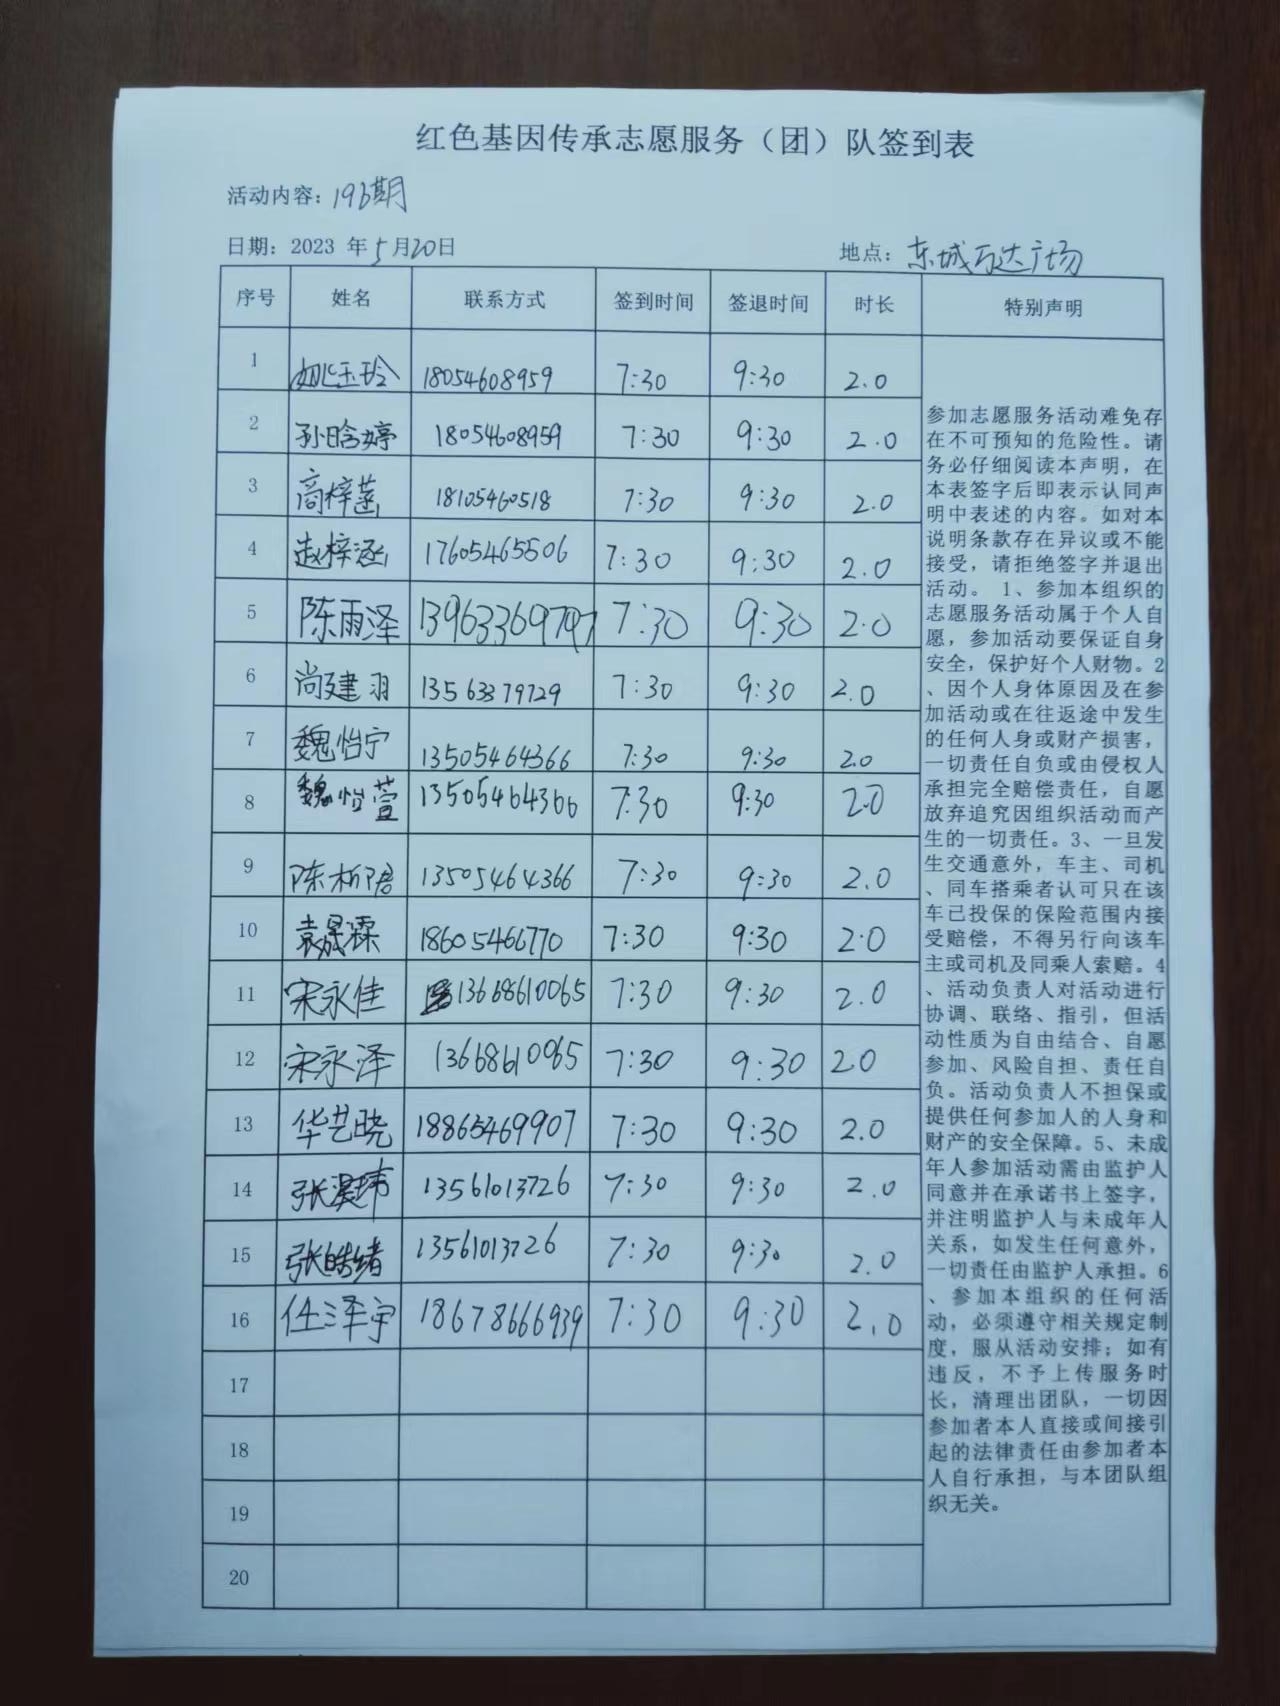 红色基因传承志愿服务（团）队签到表
活动内容：196期
日期：2023 年5月20日 地点：东城万达广场
序号 姓名 联系方式 签到时间 签退时间 时长 特别声明
1 姚玉玲 18054608959 7:30 9:30 2.0
2 孙晗婷 18054608959 7:30 9:30 2.0
3 高梓菡 18105460518 7:30 9:30 2.0
4 赵梓涵 17605465506 7:30 9:30 2.0
5 陈雨泽 13963369797 7:30 9:30 2.0
6 尚建羽 13563379729 7:30 9:30 2.0
7 魏怡宁 13505464366 7:30 9:30 2.0
8 魏怡萱 13505464366 7:30 9:30 2.0
9 陈析 13505464366 7:30 9:30 2.0
10 袁晟霖 18605466770 7:30 9:30 2.0
11 宋永佳 13668610065 7:30 9:30 2.0
12 宋永泽 13668610065 7:30 9:30 2.0
13 华艺晓 18865469907 7:30 9:30 2.0
14 张淏玮 13561013726 7:30 9:30 2.0
15 张皓绪 13561013726 7:30 9:30 2.0
16 任泽宇 18678666939 7:30 9:30 2.0
17
18
19
20
参加志愿服务活动难免存
在不可预知的危险性。请
务必仔细阅读本声明，在
本表签字后即表示认同声
明中表述的内容。如对本
说明条款存在异议或不能
接受，请拒绝签字并退出
活动。1、参加本组织的
志愿服务活动属于个人自
愿，参加活动要保证自身
安全，保护好个人财物。2
、因个人身体原因及在参
加活动或在往返途中发生
的任何人身或财产损害，
一切责任自负或由侵权人
承担完全赔偿责任，自愿
放弃追究因组织活动而产
生的一切责任。3、一旦发
生交通意外，车主、司机
、同车搭乘者认可只在该
车已投保的保险范围内接
受赔偿，不得另行向该车
主或司机及同乘人索赔。4
、活动负责人对活动进行
协调、联络、指引，但活
动性质为自由结合、自愿
参加、风险自担、责任自
负。活动负责人不担保或
提供任何参加人的人身和
财产的安全保障。5、未成
年人参加活动需由监护人
同意并在承诺书上签字，
并注明监护人与未成年人
关系，如发生任何意外，
一切责任由监护人承担。6
、参加本组织的任何活
动，必须遵守相关规定制
度，服从活动安排；如有
违反，不予上传服务时
长，清理出团队，一切因
参加者本人直接或间接引
起的法律责任由参加者本
人自行承担，与本团队组
织无关。